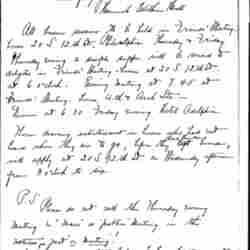 All business sessions to be held in Friends' Meeting
House 20 S 12th St, Philadelphia Thursday & Friday
Thursday evening a simple supper will be served to
delegates in Friends' Meeting House at 20 S 12th St
at 6 o'clock. Evening meeting at 7.45 at
Friends' Meeting House 4th & Arch Sts
Dinner at 6.30 Friday evening Hotel Adelphia
Those desiring entertainment in homes who had not
heard where they are to go, before they left home,
will apply at 20 S 12th St on Wednesday afternoon
from 3 o'clock to six
P.S.
Please do not call the Thursday evening
meeting a "mass" or "public" meeting in the
notices, just a meeting!